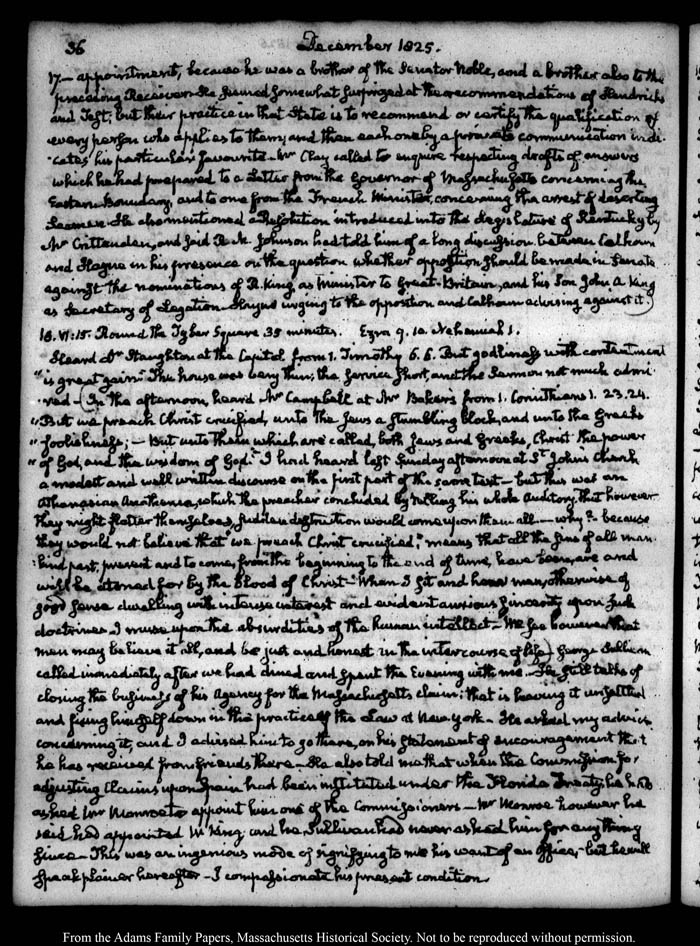 36
December 1825.
17— appointment, because he was a brother of the Senator Noble, and a brother also to the
preceding Receiver. He seemed somewhat surprized at the recommendations of Hendricks
and Test; but their practice in that State is to recommend or certify the qualification of
every person who applies to them, and then each one by a private communication indi-
-cates his particular favourite— Mr Clay called to enquire respecting drafts of answers
which he had prepared to a Letter from the Governor of Massachusetts concerning the
Eastern Boundary, and to one from the French Minister, concerning the arrest of deserting
Seamen. He also mentioned a Resolution introduced into the Legislature of Kentucky by
Mr Crittenden, and said R. M. Johnson had told him of a long discussion between Calhoun
and Hayne in his presence on the question whether opposition should be made in Senate
against the nominations of R. King as Minister to Great-Britain, and his Son John A. King
as Secretary of Legation— Hayne urging to the opposition and Calhoun advising against it)
18. VI:15. Round the Square 35 minutes. Ezra 9. 10. Nehemiah 1.
Heard Dr Staughton at the Capitol from 1. Timothy 6. 6. But godliness with contentment
"is great gain." The house was very thin; the service short, and the Sermon not much admi-
-red— (In the afternoon, heard Mr Campbell at Mr Bakers from 1. Corinthians 1. 23.24.
"But we preach Christ crucified, unto the Jews a stumbling block, and unto the Greeks
"foolishness;— But unto them which are called, both Jews and Greeks, Christ the power
"of God, and the wisdom of God." I had heard last Sunday afternoon at St. John's Church
a modest and well written discourse on the first part of the same text— but this was an
Athanasian Anathema, which the preacher concluded by telling his whole Auditory, that however
they might flatter themselves, sudden destruction would come upon them all— why?— because
they would not believe that "we preach Christ crucified," means that all the sins of all man-
-kind past, present and to come, from the beginning to the end of time, have been, are and
will be atoned for by the blood of Christ— When I sit and hear men, otherwise of
good sense dwelling with intense interest and evident anxious sincerity upon such
doctrines I muse upon the absurdities of the human intellect— We see however that
men may believe it all, and be just and honest in the intercourse of life) George Sullivan
called immediately after we had dined and spent the Evening with me— He still talks of
closing the business of his Agency for the Massachusetts claim: that is leaving it unsettled
and fixing himself down in the practice of the Law at New-York— He asked my advice
concerning it, and I advised him to go there, on his statement of encouragement that
he has received from friends there— He also told me that when the Commission for
adjusting Claims upon Spain had been instituted under the Florida Treaty, he had
asked Mr Monroe to appoint him one of the Commissioners— Mr Monroe however had
said had appointed W. King and he Sullivan had never asked him for any thing
since— This was an ingenious mode of signifying to me his want of an Office,— but he will
speak plainer hereafter— I compassionate his present condition.
From the Adams Family Papers, Massachusetts Historical Society. Not to be reproduced without permission.